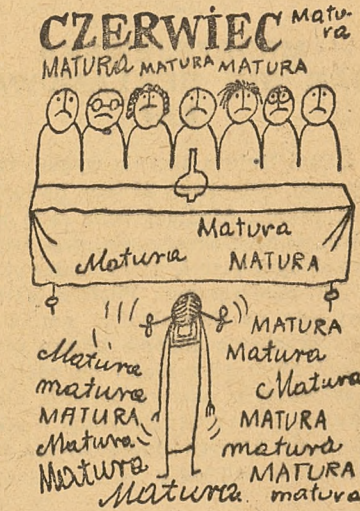 CZERWIEC Matu-
ra
MATURA MATURA MATURA
Matura
Matura MATURA
MATURA
Matura Matura
matura Matura
MATURA MATURA
Matura matura
Matura MATURA
Matura matura